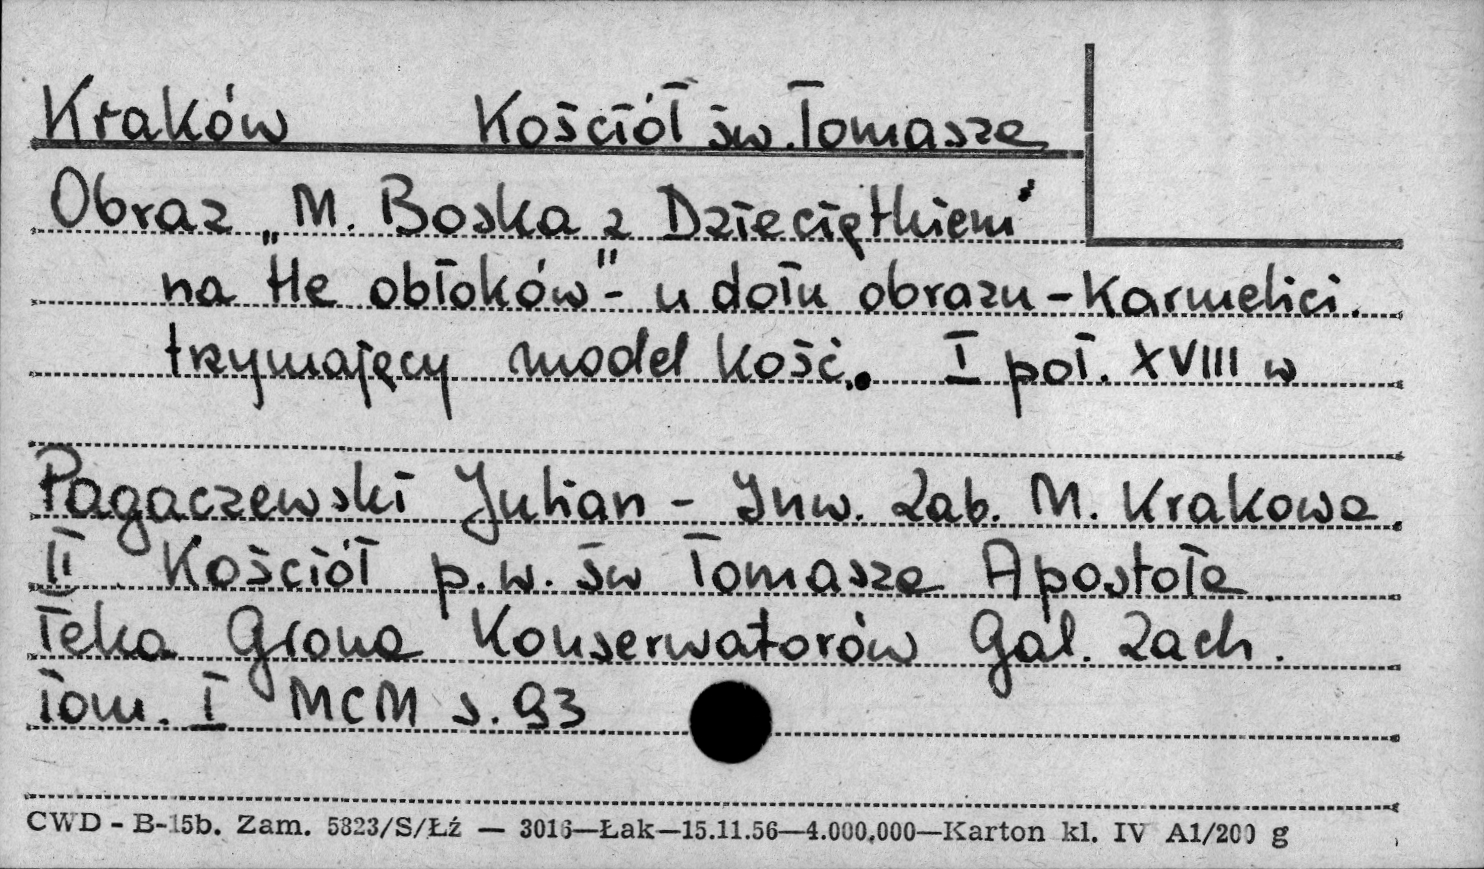 Kraków Kościół św. Tomasza
Obraz „M. Boska z Dzieciątkiem"
na tle obłoków" - u dołu obrazu - Karmelici
trzymający model kość. I poł. XVIII w
Pagaczewski Julian - Inw. Zab. M. Krakowa.
II Kościół p.w. św Tomasza Apostoła
Teka Grona Konserwatorów Gal. Zach.
Tom. I MCM s. 93
CWD - B-15b. Zam. 5823/S/Łź — 3016—Łak—15.11.56—4.000,000—Karton kl. IV A1/200 g